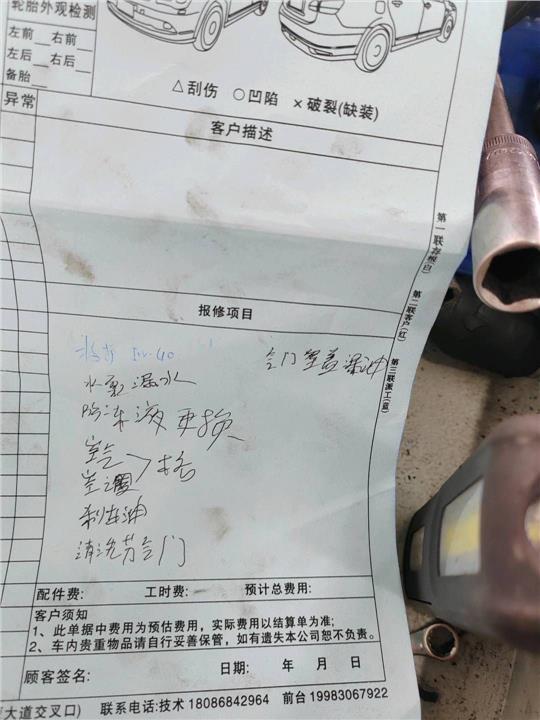 轮胎外观检测
左前__右前__
左后__右后__
备胎__
异常
△刮伤 ○凹陷 ×破裂(缺装)
客户描述
第一联存根(白) 第二联客户(红) 第三联派工(蓝)
报修项目
5w-40
水泵漏水 气门室盖渗油
防冻液更换
空气
空调>格
刹车油
清洗节气门
配件费: 工时费: 预计总费用:
客户须知
1、此单据中费用为预估费用，实际费用以结算单为准;
2、车内贵重物品请自行妥善保管，如有遗失本公司恕不负责。
顾客签名: 日期: 年 月 日
大道交叉口) 联系电话:技术 18086842964 前台 19983067922